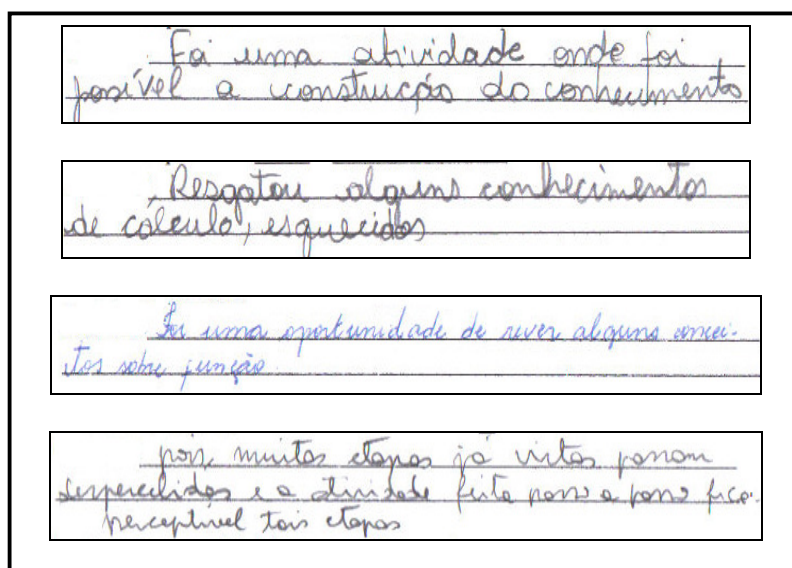 Foi uma atividade onde foi
possível a construção do conhecimento
Resgatou alguns conhecimentos
de calculo, esquecidos
Foi uma oportunidade de rever alguns concei-
tos sobre função
pois, muitas etapas já vistas passam
despercebidas e a atividade feita passo a passo fica
perceptível tais etapas